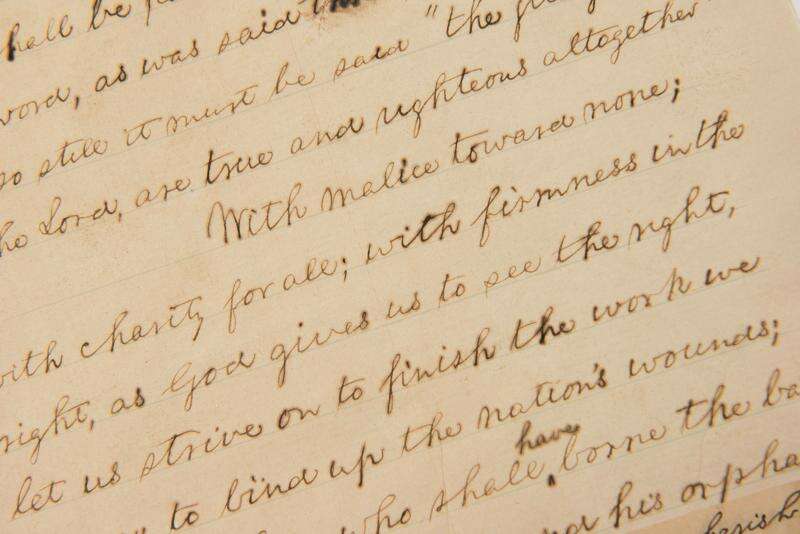 shall be
word, as was said
so still it must be said "the
the Lord, are true and righteous altogether
With malice toward none;
with charity for all; with firmness in the
right, as God gives us to see the right,
let us strive on to finish the work we
to bind up the nation's wounds;
who shall have borne the
his